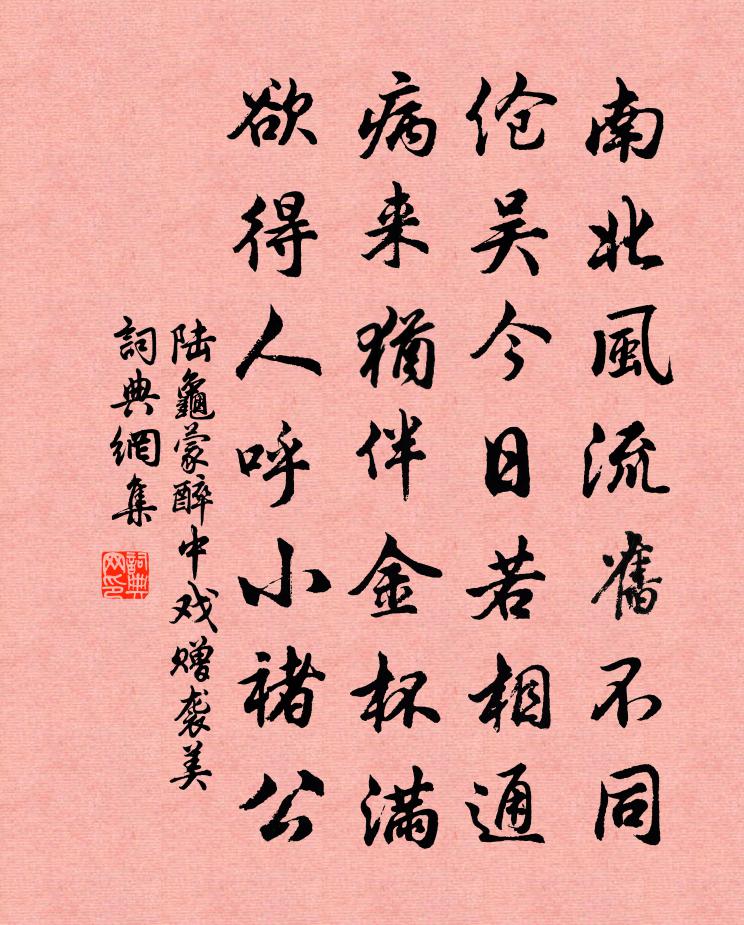 南北風流舊不同
伧吴今日若相通
病来猶伴金杯满
欲得人呼小褚公
陆龜蒙醉中戏赠袭美
詞典網集
詞典网印